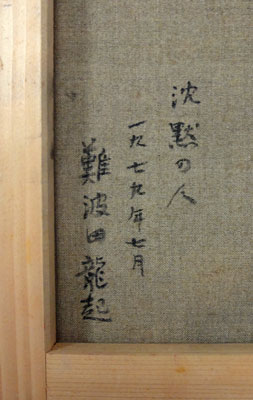 沈黙の人
一九七九年七月
難波田龍起